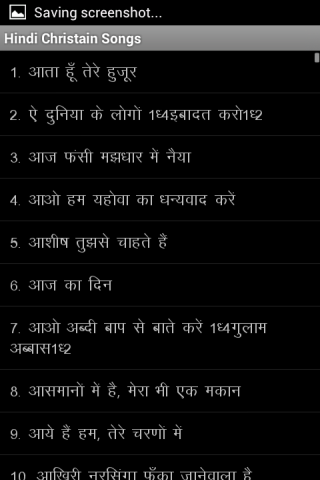 Saving screenshot...
Hindi Christain Songs
1. आता हूँ तेरे हुजूर
2. ऐ दुनिया के लोगों 1ध्4इबादत करो1ध्2
3. आज फंसी मझधार में नैया
4. आओ हम यहोवा का धन्यवाद करें
5. आशीष तुझसे चाहते हैं
6. आज का दिन
7. आओ अब्दी बाप से बाते करें 1ध्4गुलाम
अब्बास1ध्2
8. आसमानों में है, मेरा भी एक मकान
9. आये हैं हम, तेरे चरणों में
10. आखिरी नरसिंगा फूँका जानेवाला है